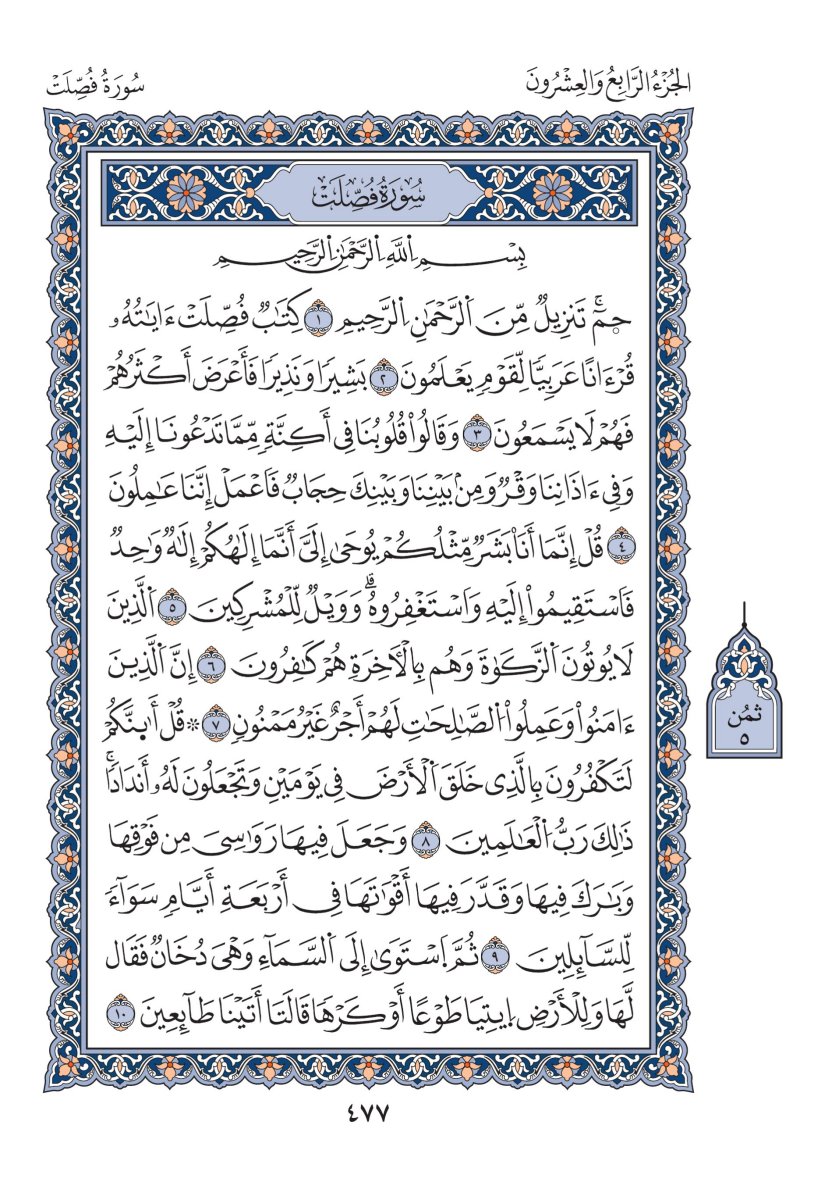 الجُزْءُ الرَّابِعُ وَالعِشْرُونَ
سُورَةُ فُصِّلَتْ
سُورَةُ فُصِّلَتْ
بِسْمِ اِللَّهِ اِلرَّحْمَٰنِ اِلرَّحِيمِ
حمِٓ تَنزِيلٌ مِّنَ اَلرَّحْمَٰنِ اِلرَّحِيمِ ١ كِتَٰبٌ فُصِّلَتْ ءَايَٰتُهُۥ
قُرْءَانًا عَرَبِيًّا لِّقَوْمٍ يَعْلَمُونَ ٢ بَشِيرًا وَنَذِيرًا فَأَعْرَضَ أَكْثَرُهُمْ
فَهُمْ لَا يَسْمَعُونَ ٣ وَقَالُواْ قُلُوبُنَا فِى أَكِنَّةٍ مِّمَّا تَدْعُونَا إِلَيْهِ
وَفِى ءَاذَانِنَا وَقْرٌ وَمِنۢ بَيْنِنَا وَبَيْنِكَ حِجَابٌ فَاعْمَلْ إِنَّنَا عَٰمِلُونَ
٤ قُلْ إِنَّمَا أَنَا۠ بَشَرٌ مِّثْلُكُمْ يُوحَىٰ إِلَىَّ أَنَّمَا إِلَٰهُكُمْ إِلَٰهٌ وَٰحِدٌ
فَاسْتَقِيمُواْ إِلَيْهِ وَاسْتَغْفِرُوهُۗ وَوَيْلٌ لِّلْمُشْرِكِينَ ٥ اَلَّذِينَ
لَا يُوتُونَ اَلزَّكَوٰةَ وَهُم بِالْأَخِرَةِ هُمْ كَٰفِرُونَ ٦ إِنَّ اَلَّذِينَ
ءَامَنُواْ وَعَمِلُواْ اُلصَّٰلِحَٰتِ لَهُمْ أَجْرٌ غَيْرُ مَمْنُونٍ ٧ ۞ قُلْ أَىِٕنَّكُمْ
لَتَكْفُرُونَ بِالَّذِى خَلَقَ اَلْأَرْضَ فِى يَوْمَيْنِ وَتَجْعَلُونَ لَهُۥ أَندَادًاۚ
ذَٰلِكَ رَبُّ اُلْعَٰلَمِينَ ٨ وَجَعَلَ فِيهَا رَوَٰسِىَ مِن فَوْقِهَا
وَبَٰرَكَ فِيهَا وَقَدَّرَ فِيهَا أَقْوَٰتَهَا فِى أَرْبَعَةِ أَيَّامٍ سَوَآءً
لِّلسَّآئِلِينَ ٩ ثُمَّ اَسْتَوَىٰ إِلَى اَلسَّمَآءِ وَهْىَ دُخَانٌ فَقَال
لَّهَا وَلِلْأَرْضِ اِيتِيَا طَوْعًا أَوْ كَرْهًا قَالَتَا أَتَيْنَا طَآئِعِينَ ١٠
ثُمُن
٥
٤٧٧